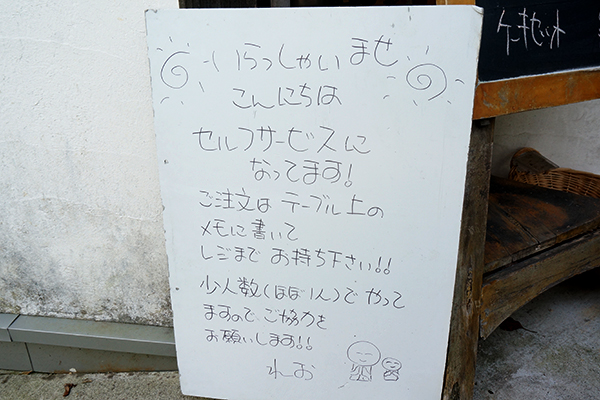 いらっしゃいませ
こんにちは
セルフサービスに
なってます!
ご注文は テーブル上の
メモに書いて
レジまで お持ち下さい!!
少人数(ほぼ1人)で やって
ますので、ご協力を
お願いします!!
れーお
ケーキセット